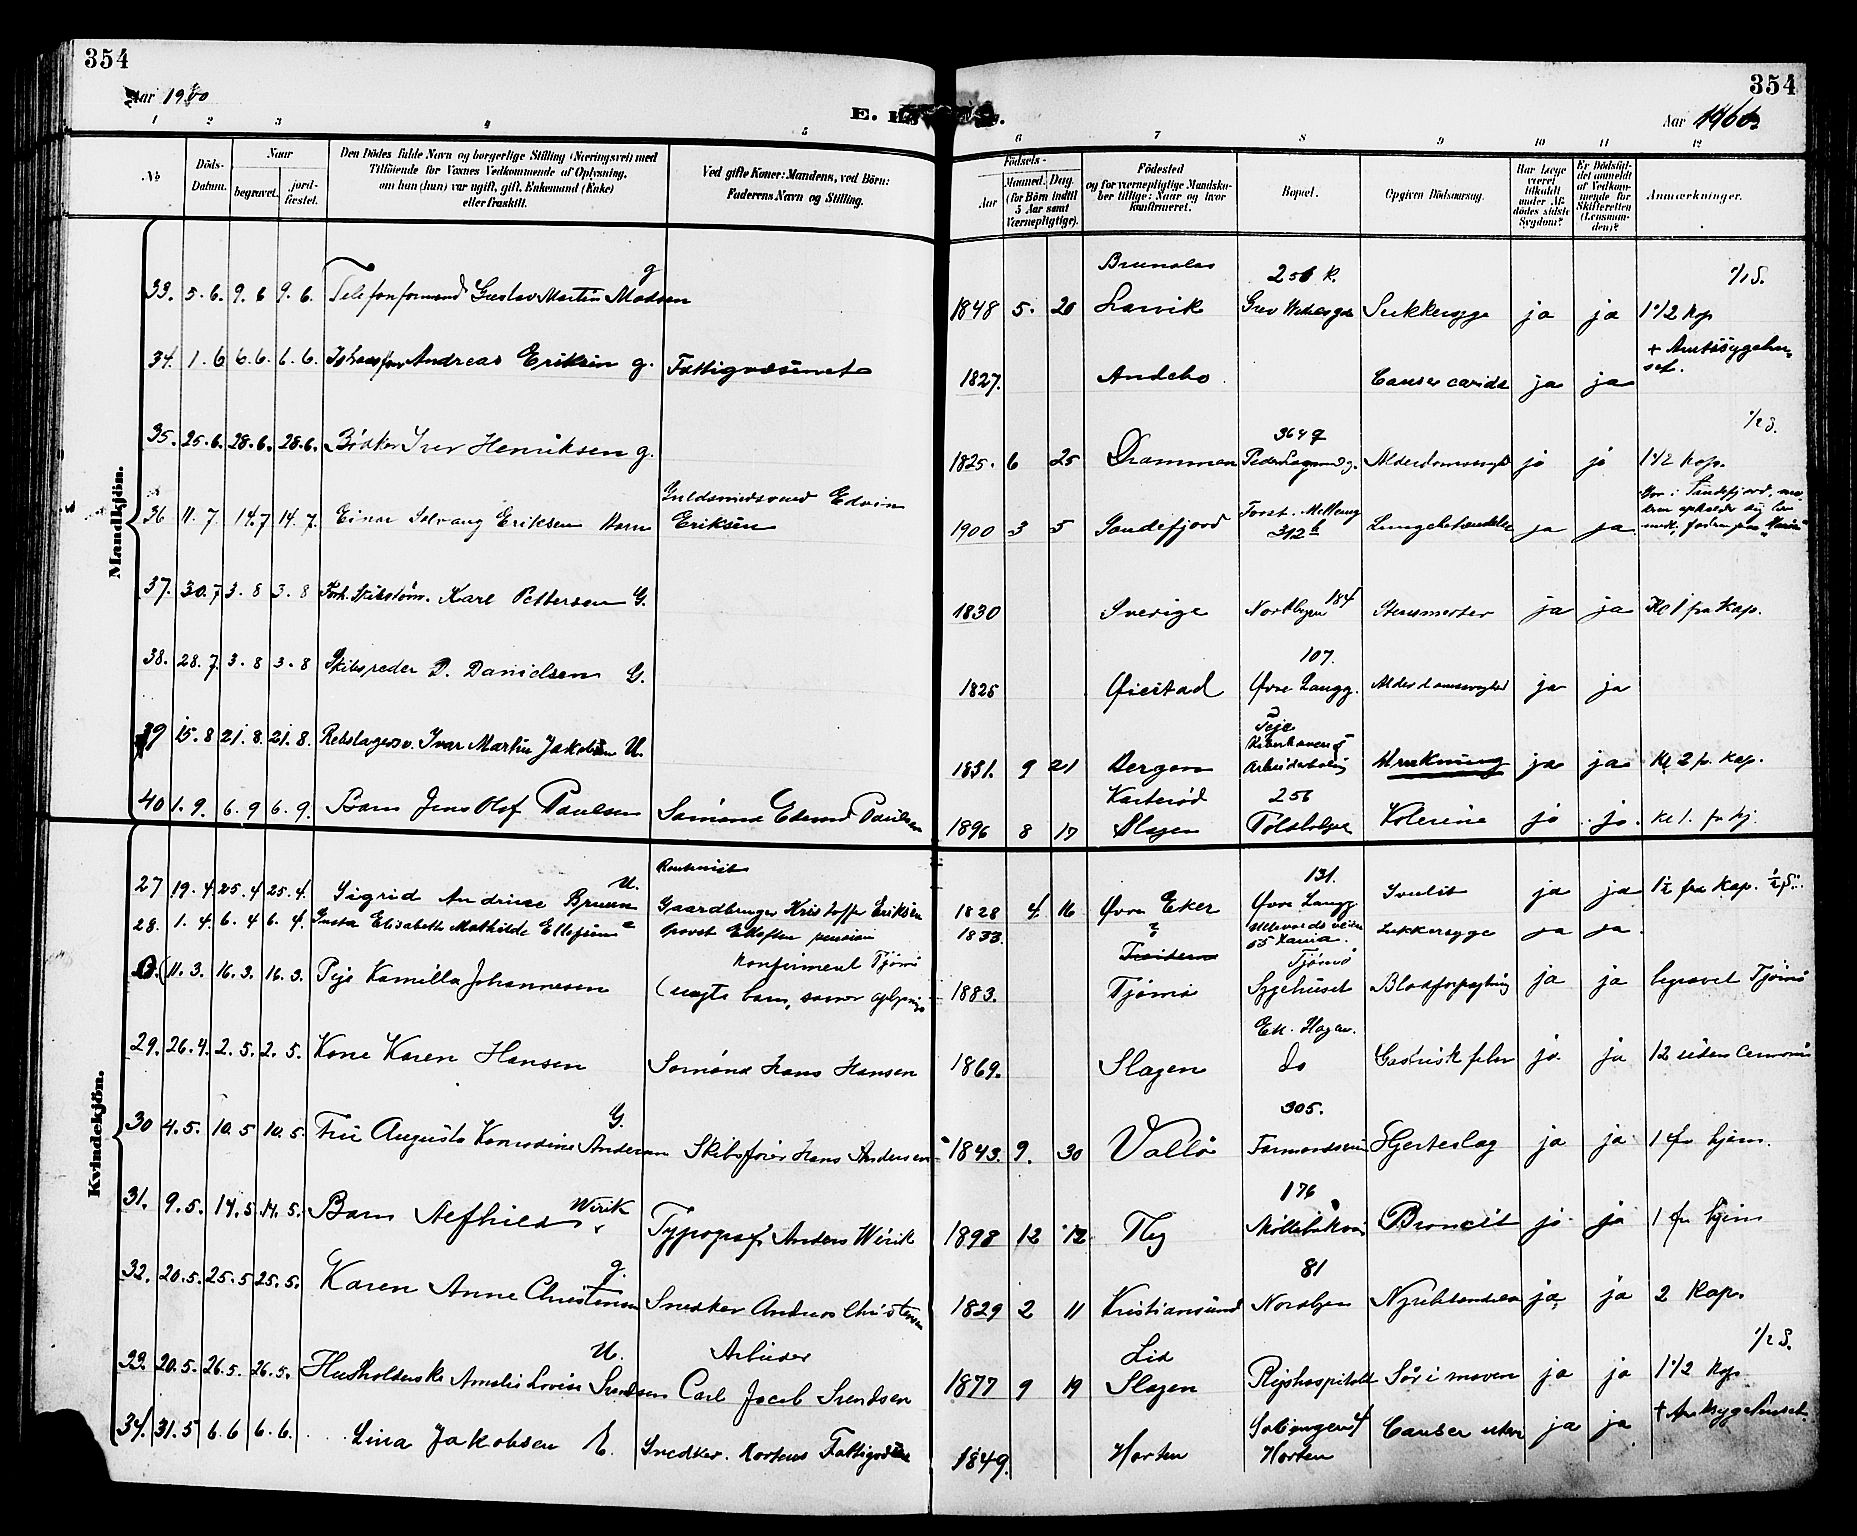 354
354
Aar 1900
Aar 1900
E.
1 2 3 4 5 6 7 8 9 10 11 12
No
Döds-Datum.
Naar
begravet.
jord-fæstet.
Den Dödes fulde Navn og borgerlige Stilling (Næringsvei) med
Tilföiende for Voxnes Vedkommende af Oplysning,
om han (hun) var ugift, gift, Enkemand (Enke)
eller fraskilt.
Ved gifte Koner: Mandens, ved Börn:
Faderens Navn og Stilling.
Födsels-
Aar
Maaned. Dag.
(for Börn indtil
5 Aar samt
Værnepligtige).
Födested
og for værnepligtige Mandska-
ber tillige: Naar og hvor
konfirmeret.
Bopæl.
Opgiven Dödsaarsag.
Har Læge
været
tilkaldt
under Af-
dödes sidste
Sygdom?
Er Dödsfal-
det anmeldt
af Vedkom-
mende for
Skifteretten
(Lensman-
den)?
Anmærkninger.
Mandkjön.
33. 5. 6. 9. 6 9. 6. Telefonformand Gustav Martin Madsen g
1848 5. 20 Brunlas Larvik 256 k. Grev Wedelsgd Sukkersyge ja ja 1 1/2 Kap 1/1 S.
34. 1. 6 6. 6. 6. 6. Andreas Eriksen g. Fattigvæsenet
1827. Andebo Cancer ja ja + Amtssygehu-
set.
35. 25. 6. 28. 6. 28. 6. Bödker Iver Henriksen g.
1825. 6 25 Drammen 364 ja ja 1 1/2 Kap. 1/2 S.
36 11. 7. 14. 7 14. 7. Einar Solvang Eriksen Barn Guldsmedsvend Edvin
Eriksen
1900 3 5 Sandefjord 312 b Lungebetændelse ja ja
37. 30. 7 3. 8 3. 8 Skibstöm. Karl Pettersen G.
1830 Sverige Nordbyen 184 ja ja Kl 1 fra Kap.
38. 28. 7. 3. 8 3. 8 Skibsreder D. Danielsen G.
1825 Øiestad 107. Øvre Langg. Alderdomssvaghed ja ja
39 15. 8 21. 8. 21. 8. Ivar Martin Jakobsen U.
1851. 9 21 Bergen Arbeiderbolig Drukning ja ja Kl 2 fr. Kap.
40 1. 9. 6. 9 6. 9. Barn Jens Olof Paulsen Sømand Edvard Paulsen
1896 8 17 Slagen 256 Kolerine ja ja. kl 1. fr hj.
Kvindekjön.
27 19. 4. 25. 4 25. 4. Sigrid Andrine Bruun U.
Gaardbruger Kristoffer Eriksen
1828 4. 16 Øvre Eker 131. Øvre Langg. ja ja 1 1/2 fra Kap. 1/2 S.
28. 1. 4. 6. 4 6. 4. Elisabeth Mathilde Ellefsen
1833. ? Sukkersyge ja ja
11. 3. 16. 3. 16. 3. Pige Kamilla Johannesen Konfirmert Tjømø
(uegte barn,
1883. Tjømø Tjømø Sygehuset Blodforgiftning ja ja begravet Tjømø
29. 26. 4. 2. 5. 2. 5. Kone Karen Hansen Sømand Hans Hansen
1869. Slagen Ek. Hagen. do Gastrisk feber ja ja 12 uden Ceremoni
30 4. 5. 10. 5 10. 5. Fru Augusta Konradine Andersen G. Skibsförer Hans Andersen
1843. 9. 30 Vallö 305. Hjerteslag ja ja 1 fr hjem.
31. 9. 5. 14. 5 14. 5. Barn Alfhild Wirik Typograf Anders Wirik
1898 12 12 Tbg 176 Bronchit ja ja 1 fr hjem
32. 20. 5. 25. 5 25. 5. Karen Anne Christensen g. Snedker Andreas Christensen
1829 2 11 Kristiansund 81 Nordbyen ja ja 2 Kap.
33. 20. 5. 26. 5. 26. 5. Husholderske Amalie Lovise Svendsen U. Arbeider
Carl Jacob Svendsen
1877 9 19 Lid Slagen Rigshospitalet Sår i maven ja ja 1 1/2 Kap 1/2 S.
34. 31. 5 6. 6 6. 6. Lina Jakobsen E. Snedker. Hortens Fattigvæsen
1849. Horten Solbjergen 4 Horten Cancer uteri ja ja + Amtssygehuset